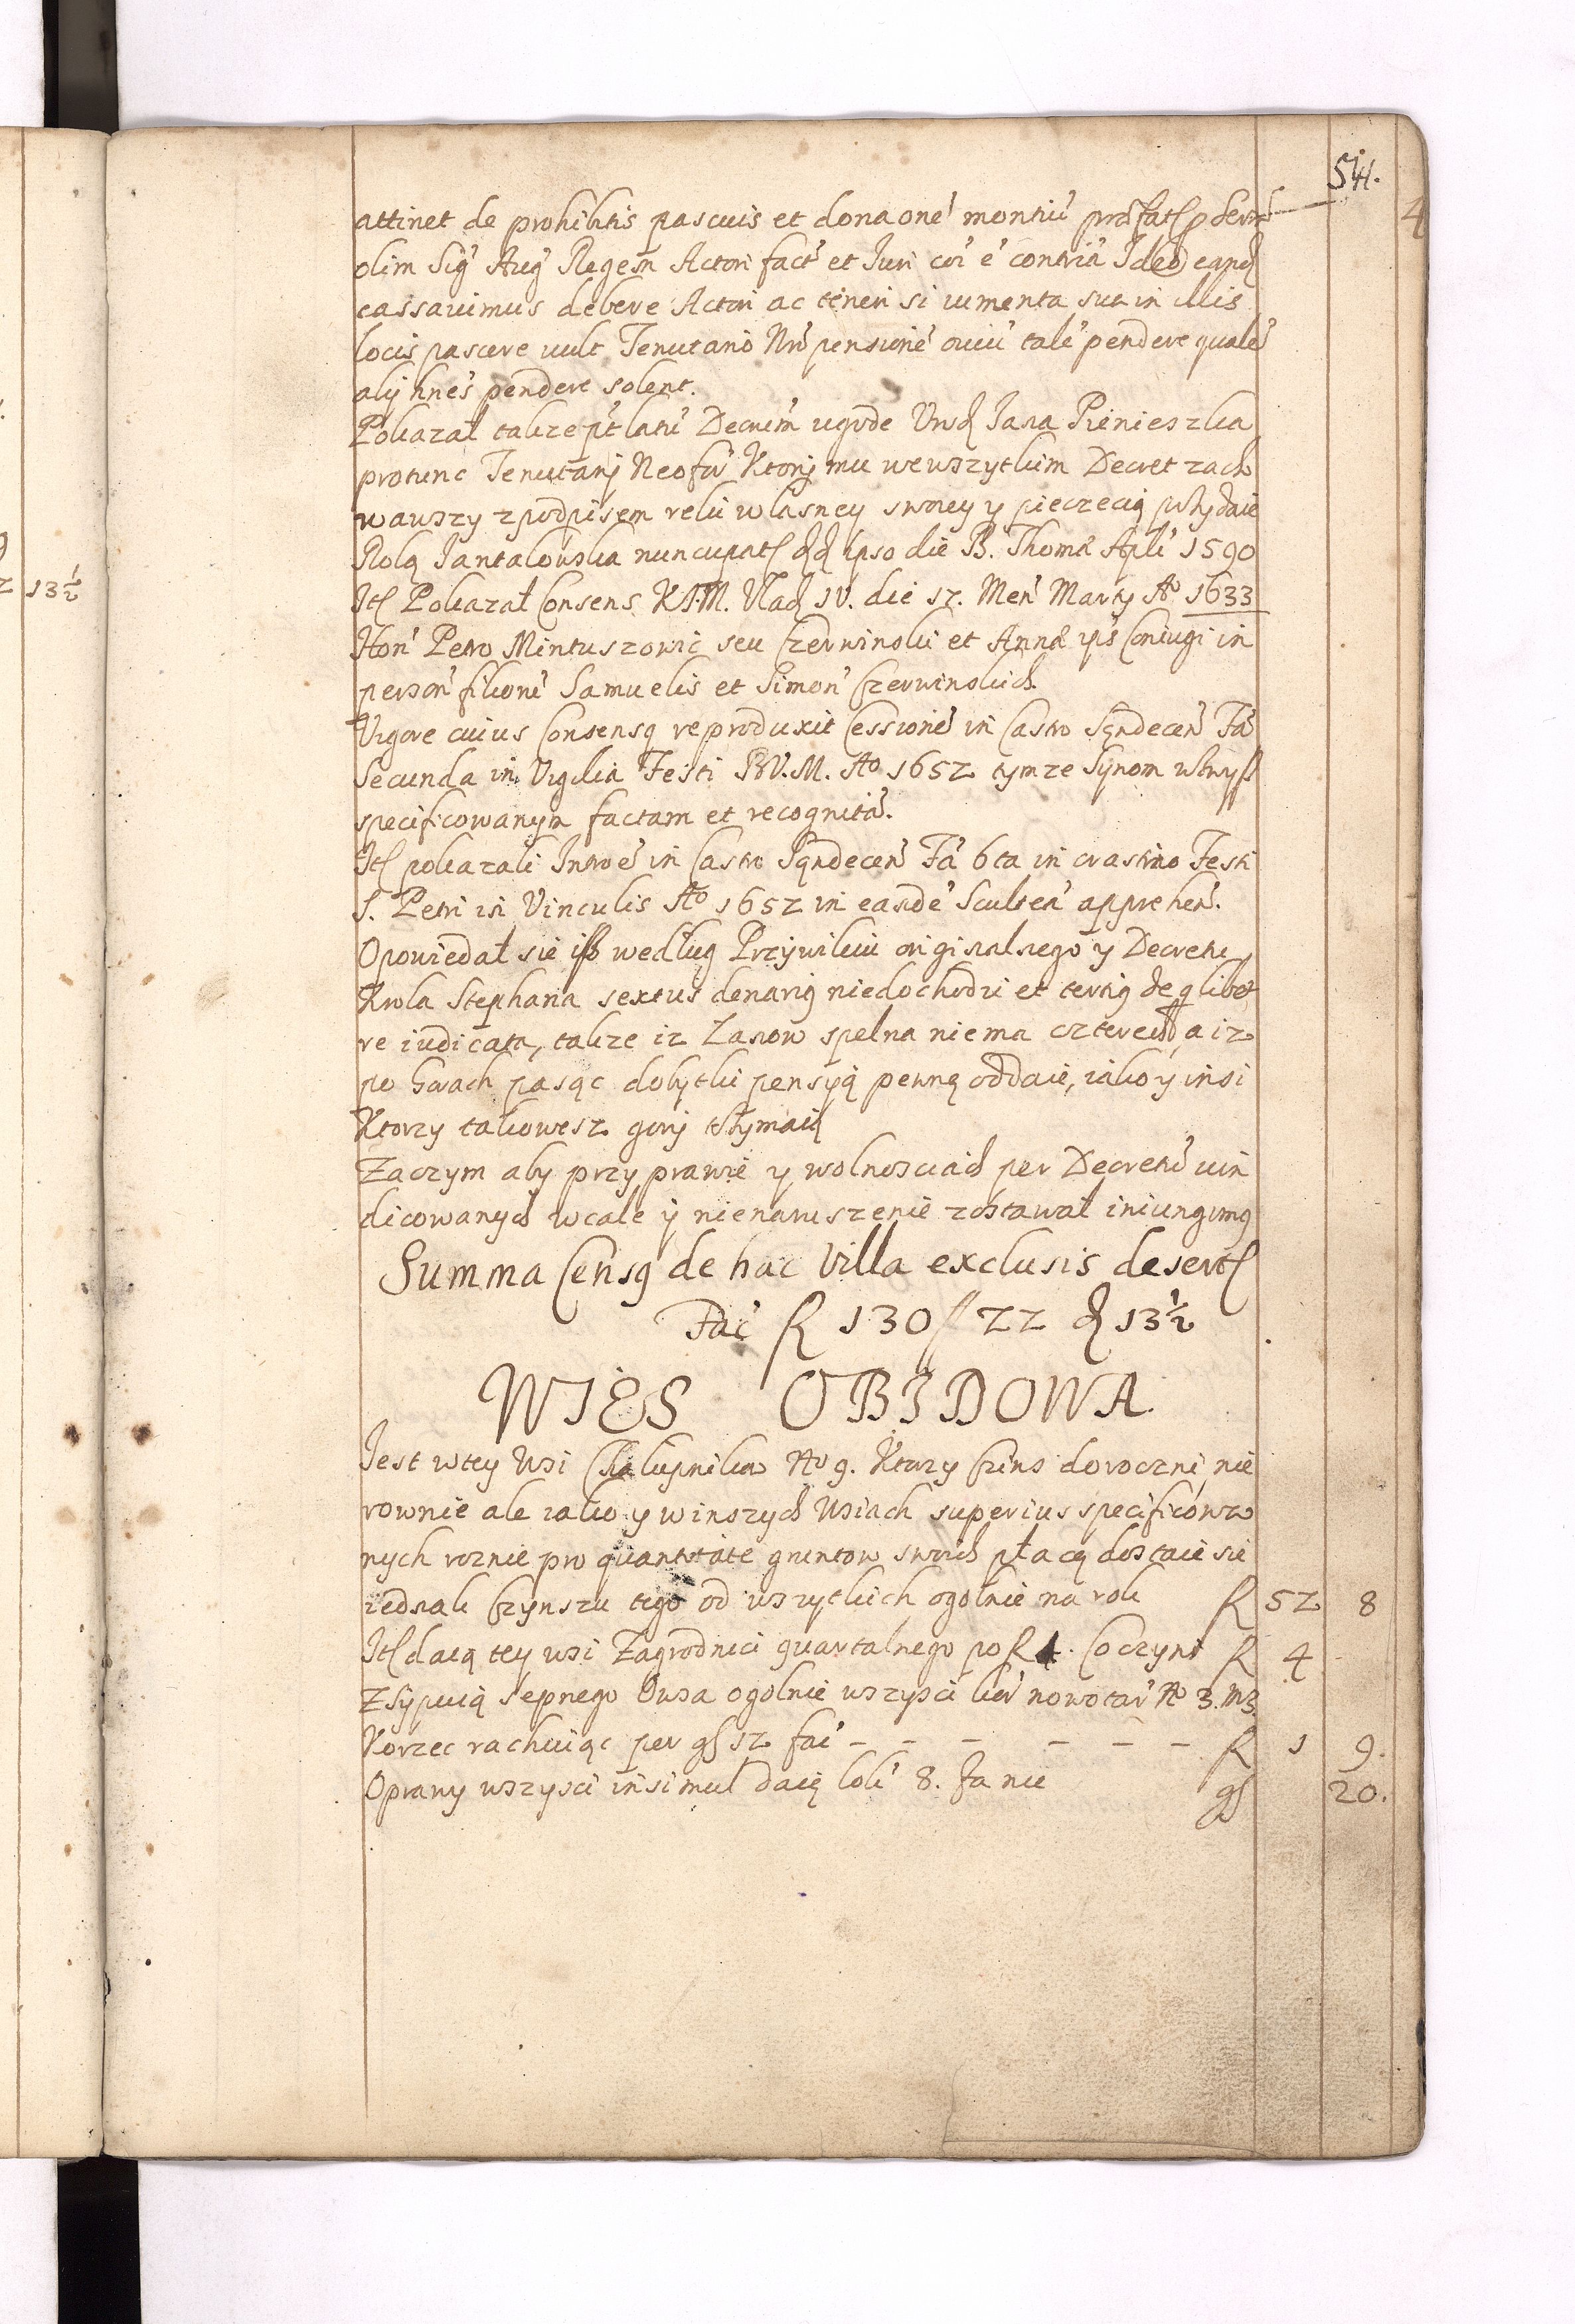 54.
attinet de prohibitis pascuis et donaone montiu præfat p Serm
olim Sig Aug Regem Actori fact et Juri coi e contria Ideo eand
cassavimus debere Actori ac teneri si iumenta sua in illis
locis pascere vult Tenutario Nro pensione oviu tale pendere quale
alij hnes pendere solent.
Pokazał także pt latu Decrem ugode Urod Jana Pienieszka
protunc Tenutarij Neofor Ktorj mu wewszytkim Decret zacho
wawszy z podpisem reki własney swoiey y pieczecią przydaie
Rolą Jantakowska nuncupat dd ipso die B. Thomæ Apli 1590
It Pokazał Consens K.J.M. Vlad IV. die 12. Men Marty Ao 1633
Hon Petro Mintuszowic seu Czerwinski et Annæ ips Coniugi in
person filiorū Samuelis et Simon Czerwinskich.
Vigore cuius Consensq reproduxit Cessionē in Castro Sądecen Fa
Secunda in Vigilia Festi B.V.M. Ao 1652 tymze Synom wzwyß
specificowanym factam et recognita.
It pokazali Introe in Castro Sądecen Fa 6ta in crastino Festi
S. Petri in Vinculis Ao 1652 in eande Scultea apprehen.
Opowiedał sie iß według Przywileiu originalnego y Decretu
Krola Stephana sextus denariq niedochodzi et tertiq de qlibet
re iudicata, także iz Łanow spełna nie ma czterech, a iz
po Gorach pasąc dobytki pensyą pewną oddaie, iako y insi
Ktorzy takowesz gory trzymaią
Zaczym aby przy prawie y wolnosciach per Decretū vin
dicowanych wcale y nienaruszenie zostawał iniungimq
Summa Censq de hac Villa exclusis desert
Fac f 130 / 22 d 13½
WIES OBIDOWA.
Jest wtey Wsi Chałupnikow No 9. Ktorzy Czins doroczni nie
rownie ale iako y winszych Wsiach superius specificowa
nych roznie pro quantitate gruntow swoich płacą dostaie sie
iednak Czynszu tego od wszytkich ogolnie na rok f 52 8
It daią tey wsi Zagrodnici quartalnego po f 4. Co czyni f 4
Zsypuią sepnego Owsa ogolnie wszysci kor nowotar No 3. m 3.
Korzec rachuiąc per gs 12 fac - - - - - - f 1 9.
Oprawy wszysci insimul daią łok 8. Fa nu gs 20.
13½